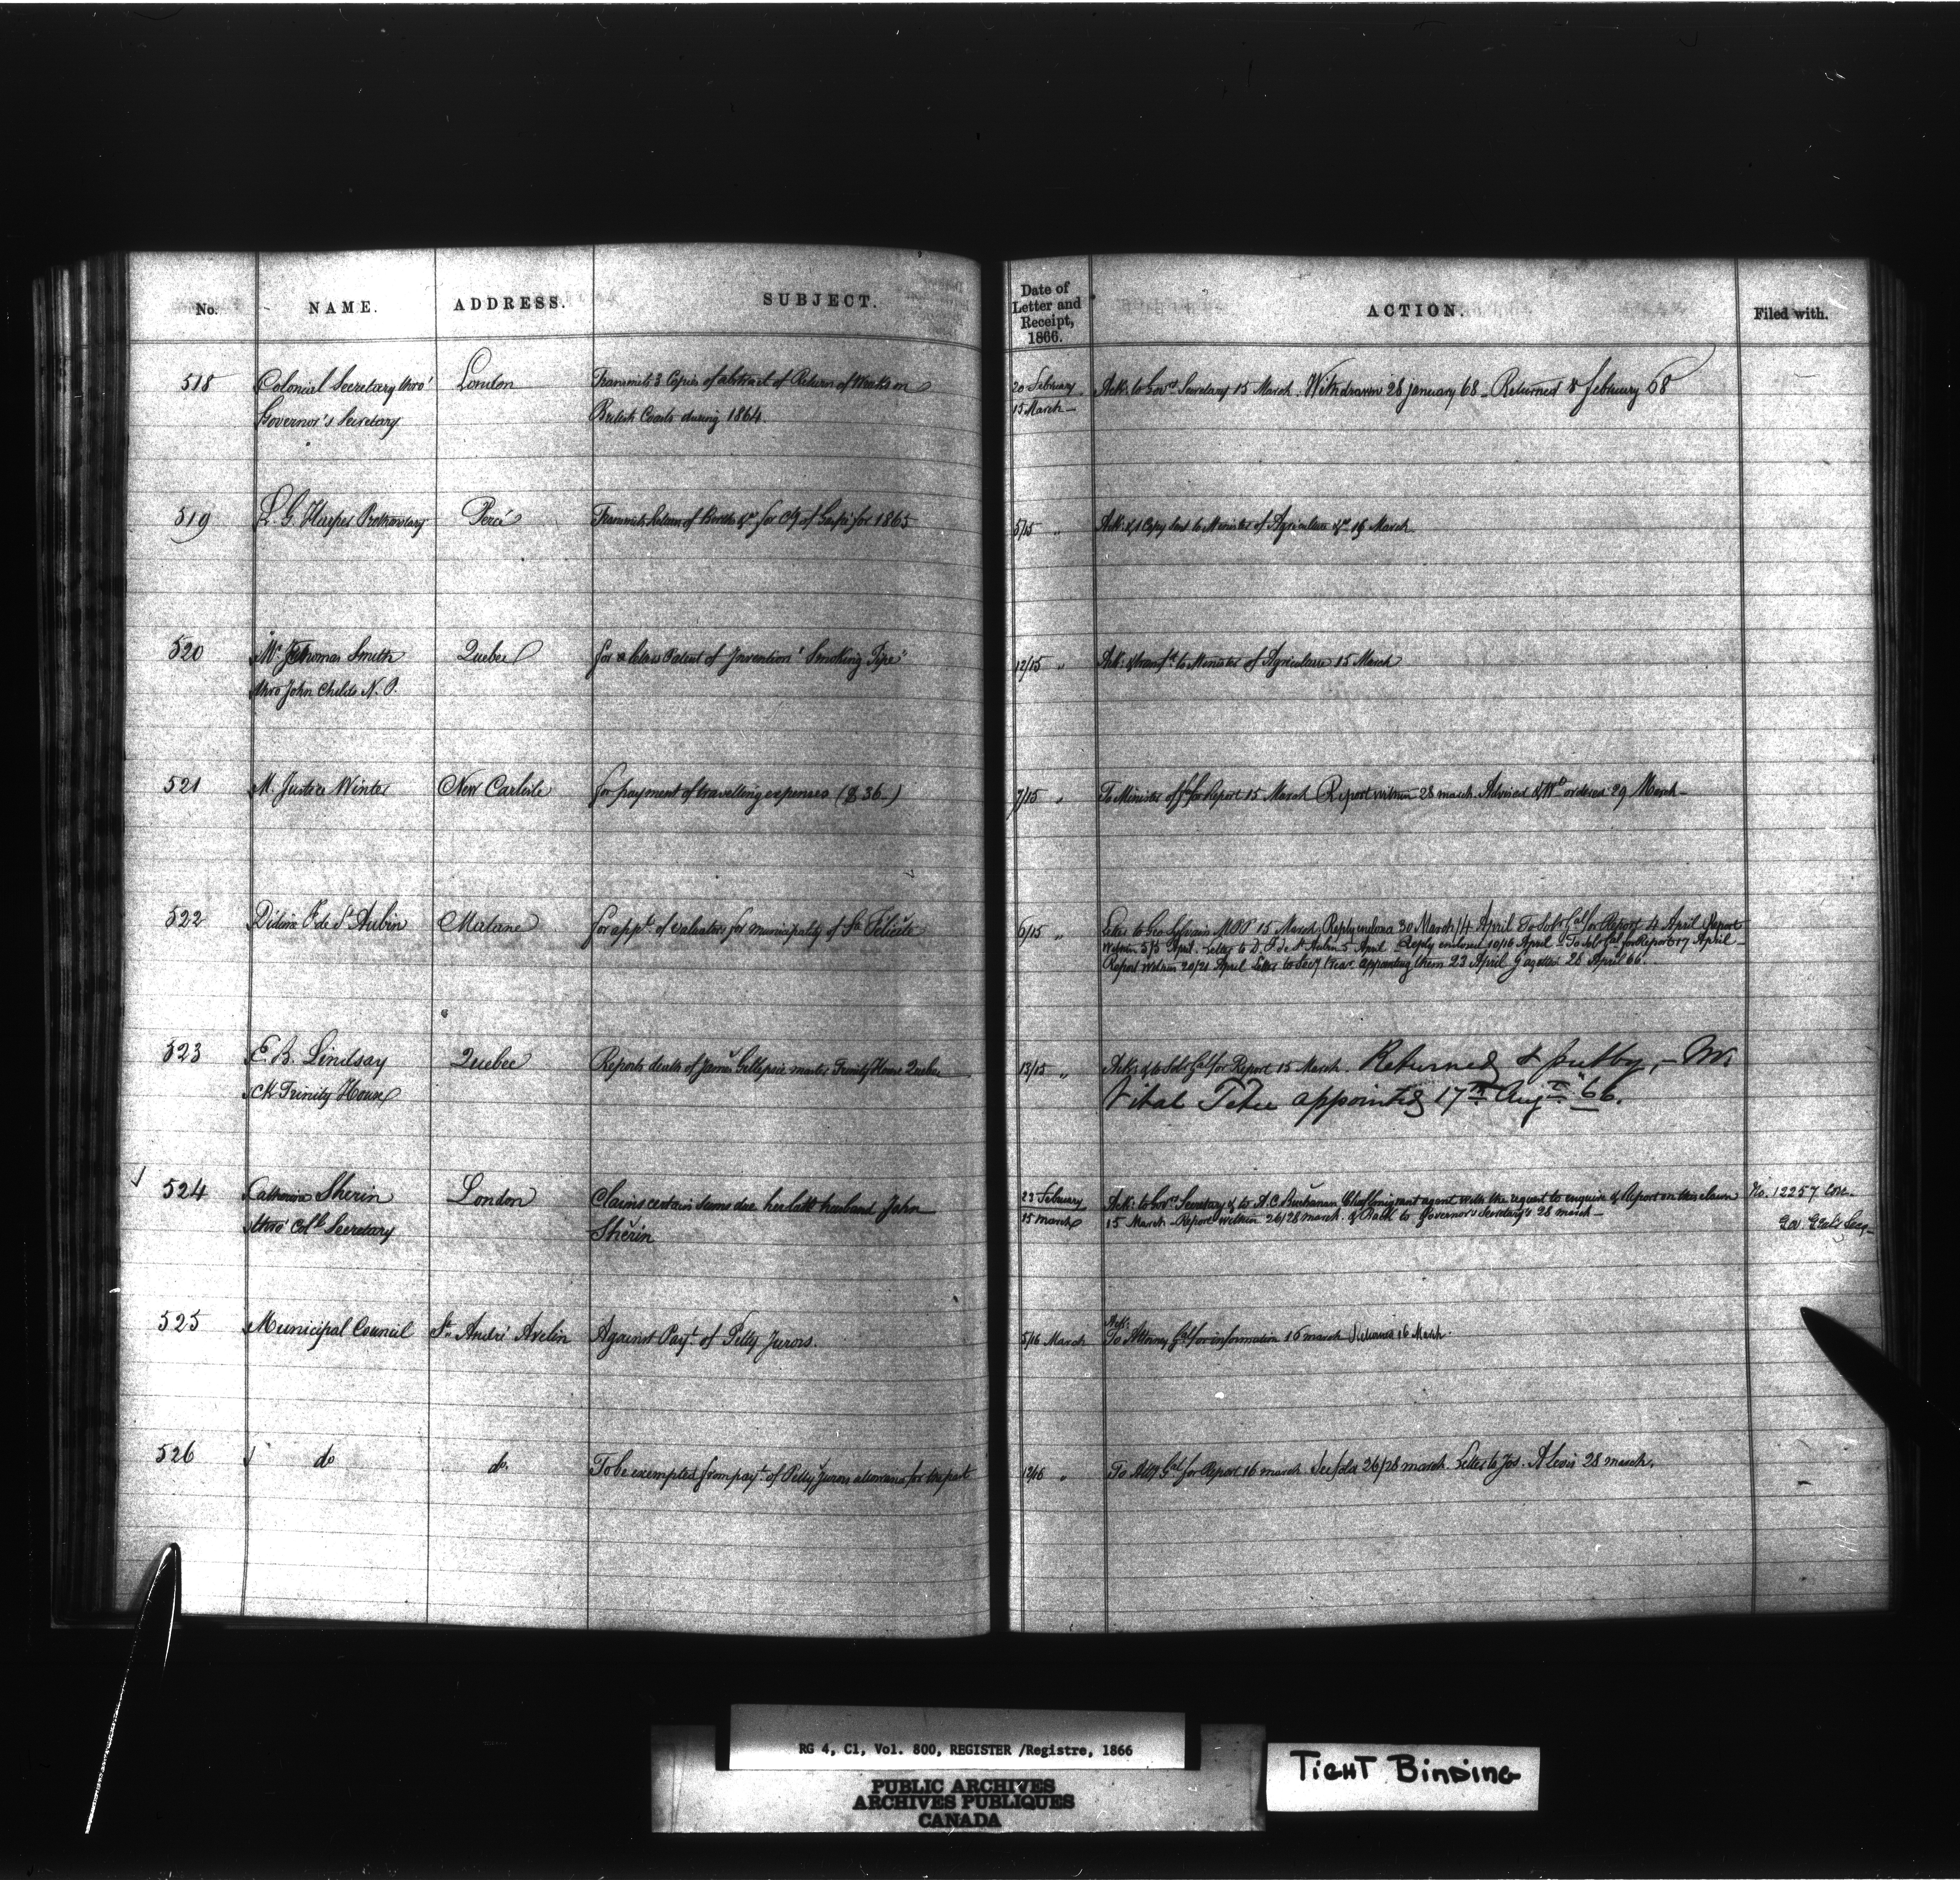 No. NAME. ADDRESS. SUBJECT. Date of Letter and Receipt, 1866. ACTION. Filed with.
518 Colonial Secretary thro' London Transmits 3 Copies of abstract of Return of Wrecks on 20 February Ack: to Govrs Secretary 15 March. Withdrawn 28 January 68 _ Returned 8 february 68
Governor's Secretary British Coasts during 1864. 15 March _
519 L. G. Harper Prothonotary Percé Transmits Return of Births &c for Cty of Gaspé for 1865 5/15 " Ack: & 1 Copy sent to Minister of Agriculture &c 16 March
520 Mr Thomas Smith Quebec for a letters Patent of Invention "Smoking Pipe" 12/15 " Ack: & transfd to Minister of Agriculture 15 March
thro John Childs N. P.
521 M. Justice Winter New Carlisle for payment of travelling expenses ($ 36.) 7/15 " To Minister of for Report 15 March Report within 28 march. Advised & Wt ordered 29 March _
522 F. de St Aubin Matane for appt of valuators for municipality of Ste Félicité 6/15 " Letter to Geo Sylvain MPP 15 March. Reply enclosed 30 March/4 April To Solr Gal for Report 4 April Report
within 5/5 April. Letter to D. F. de St Aubin 5 April Reply enclosed 10/16 April To Sol Gal for Report 17 April _
Report within 20/21 April Letter to Secy Treas. appointing them 23 April Gazetted 28 April 66.
523 E. B. Lindsay Quebec Reports death of James Gillespie master Trinity House Quebec 13/15 " Ack: & to Solr Gal for Report 15 March. Returned & put by, _ Mr.
Ck Trinity House Vital Tétu appointed 17th Augt 66.
524 Catherine Sherin London Claims certain sums due her late husband John 23 February Ack: to Govrs Secretary & to A C Buchanan Chief Emigrant agent with the request to enquire & Report on this claim No. 12257 Cor.
thro' Coll Secretary Sherin 15 march 15 March _ Report within 26/28 march. & to Governor's Secretary's 28 march _ Gov. Genl's Secy _
525 Municipal Council St André Avelin Against Payt of Petty Jurors. 5/16 March Ack:
To Attorney Gal for information 16 march Returned 16 March.
526 do do. To be exempted from payt of Petty Jurors allowance for the past 12/16 " To Atty Gal for Report 16 march 26/28 march. Letter to Jos. 28 march.
RG 4, C1, Vol. 800, REGISTER /Registre, 1866
PUBLIC ARCHIVES
ARCHIVES PUBLIQUES
CANADA
TIGHT BINDING